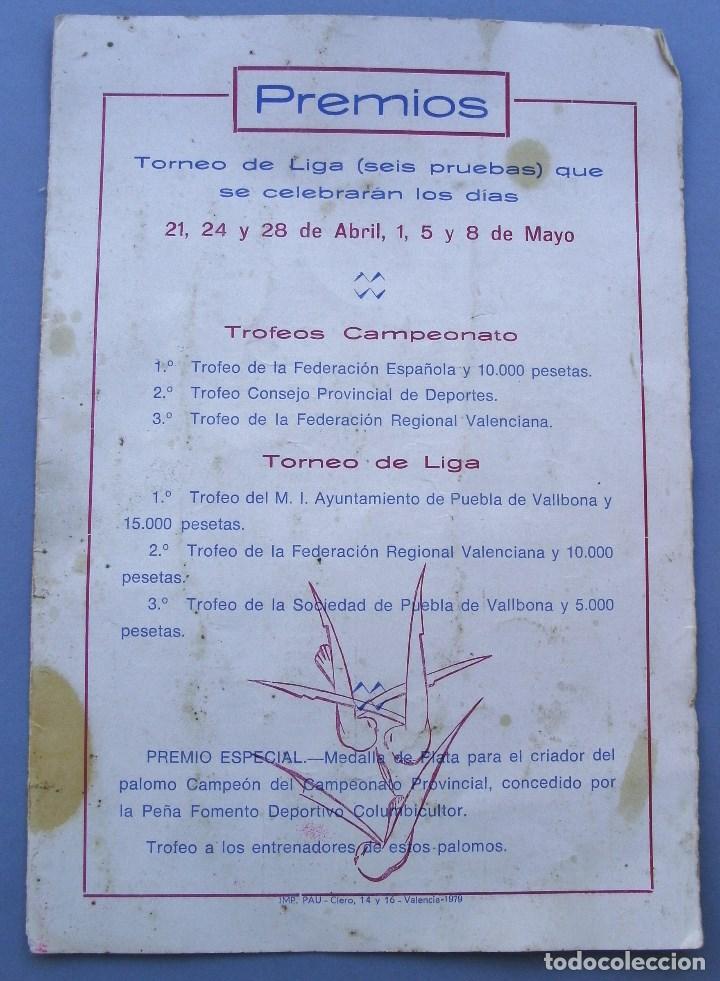 Premios
Torneo de Liga (seis pruebas) que
se celebrarán los días
21, 24 y 28 de Abril, 1, 5 y 8 de Mayo
Trofeos Campeonato
1.º Trofeo de la Federación Española y 10.000 pesetas.
2.º Trofeo Consejo Provincial de Deportes.
3.º Trofeo de la Federación Regional Valenciana.
Torneo de Liga
1.º Trofeo del M. I. Ayuntamiento de Puebla de Vallbona y
15.000 pesetas.
2.º Trofeo de la Federación Regional Valenciana y 10.000
pesetas.
3.º Trofeo de la Sociedad de Puebla de Vallbona y 5.000
pesetas.
PREMIO ESPECIAL.—Medalla de Plata para el criador del
palomo Campeón del Campeonato Provincial, concedido por
la Peña Fomento Deportivo Columbicultor.
Trofeo a los entrenadores de estos palomos.
IMP. PAU - Clero, 14 y 16 - Valencia-1979
todocoleccion